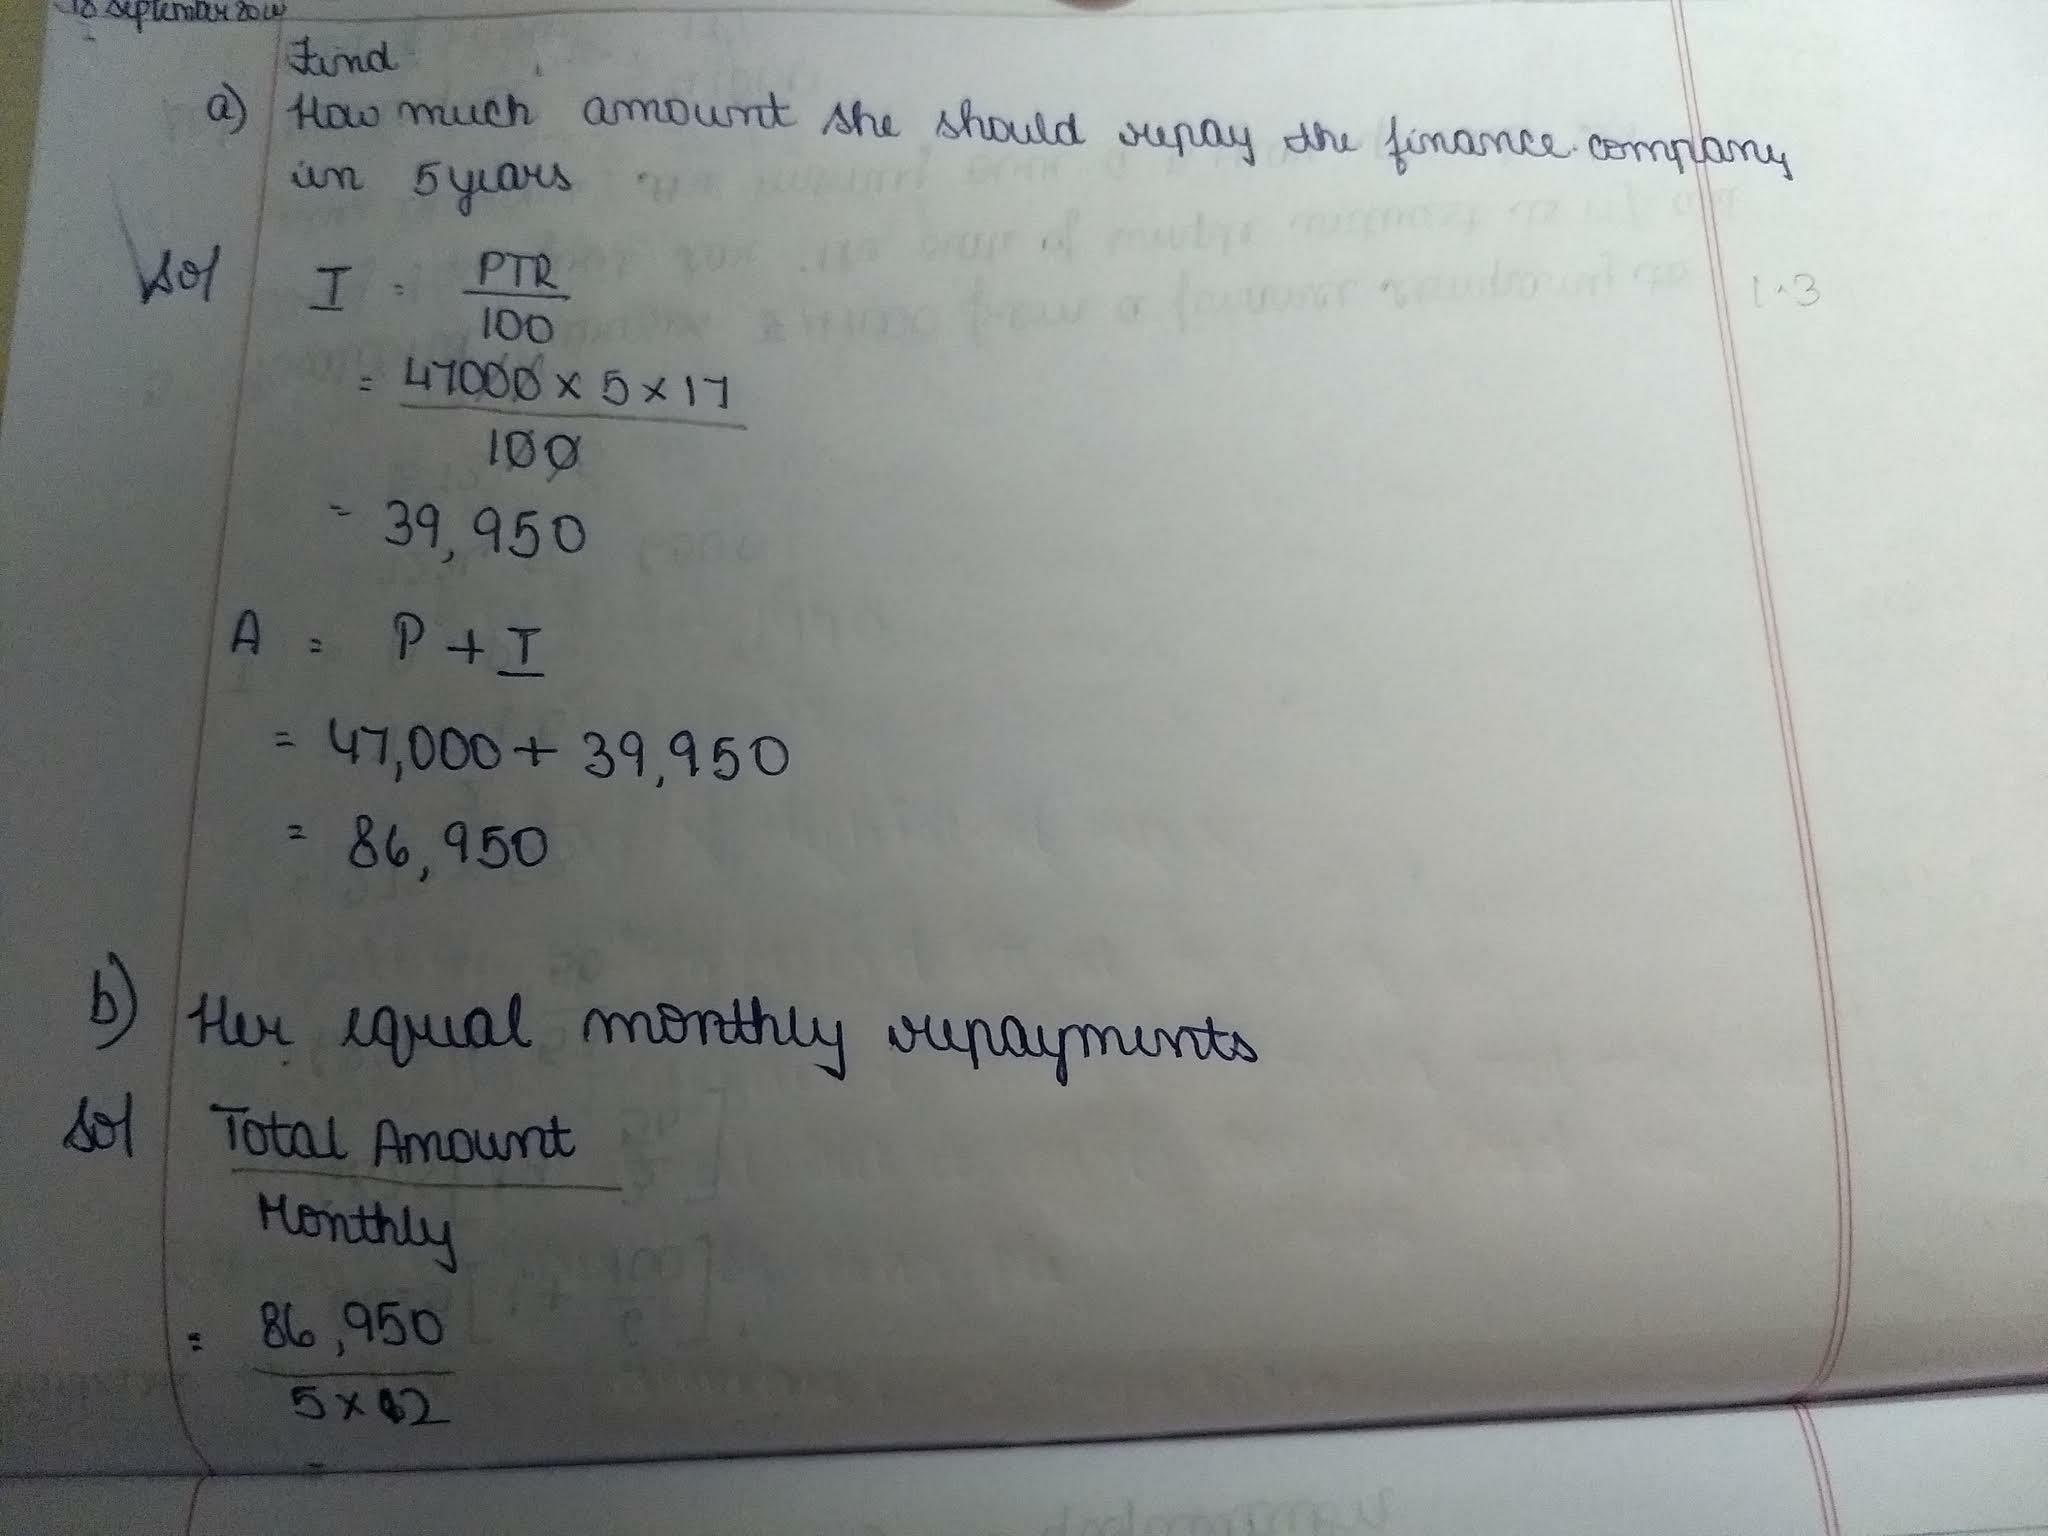 18 September 20
Find
a) How much amount she should repay the finance company
in 5 years
Sol I = PTR
100
= 47000 x 5 x 17
100
= 39,950
A = P + I
= 47,000 + 39,950
= 86,950
1.3
b) Her equal monthly repayments
Sol Total Amount
Monthly
= 86,950
5 x 12
=